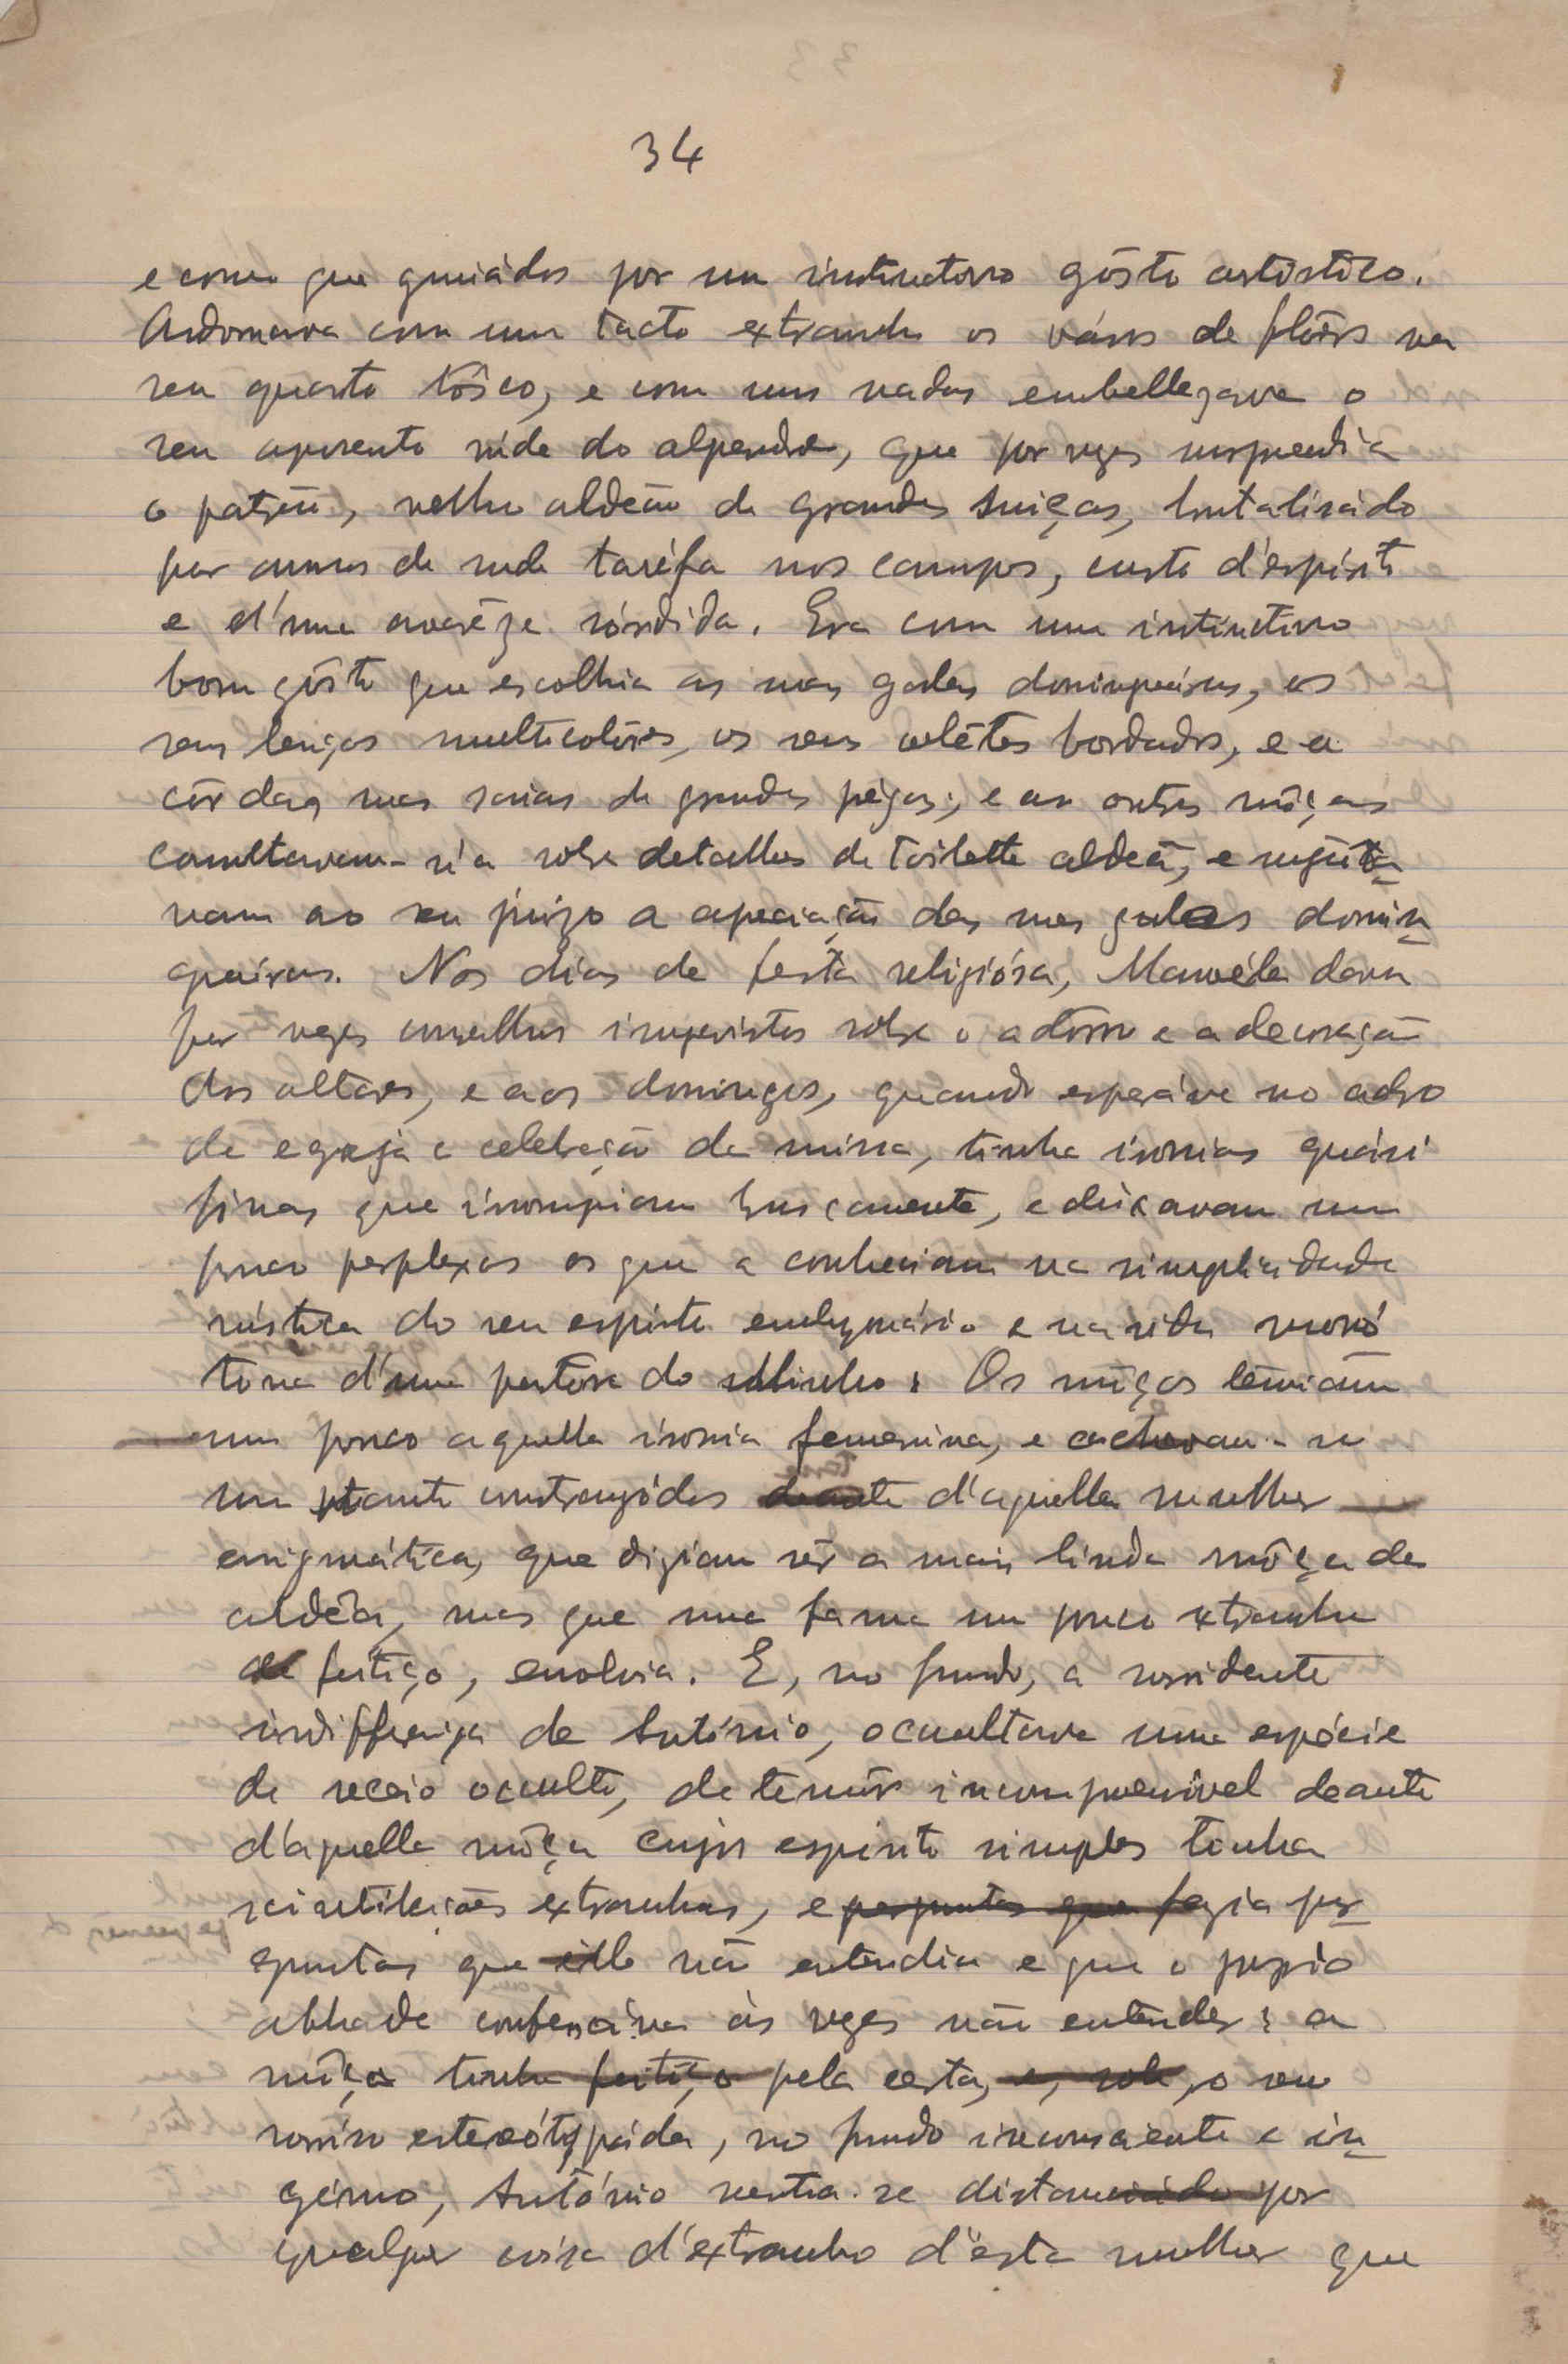 34
e como que guiádos por um instinctivo gôsto artístico.
Adornava com um tacto extranho os vásos de flôres no
seu quarto tôsco, e com uns nadas embellezava o
seu aposento rude do alpendre, que por vezes surprendia
o patrão, velho aldeão de grandes suiças, brutalisádo
por annos de rude taréfa nos campos, curto d'espírito
e d'uma avarêza sórdida. Era com um instinctivo
bom gôsto que escolhia as suas galas domingueiras, os
seus lenços multicolôres, os seus colêtes bordados, e a
côr das suas saias de grandes prégas; e as outras môças
consultavam-n'a sobre detalhes de toilette aldeã, e sujeita-
vam ao seu juizo a apreciação das suas galas domin-
gueiras. Nos dias de festa religiósa, Manoéla dava
por vezes conselhos imprevistos sobre o adôrno e a decoração
dos altares, e aos domingos, quando esperáva no adro
da egreja a celebração da missa, tinha ironias quási
finas que irrompiam bruscamente, e deixavam um
pouco perplexos os que a conheciam na simplicidade
rústica do seu espírito embryonário e na vida monó
tona d'uma pastora do Minho: Os môços temiam
um pouco aquella ironia femenina, e achavam-se
um tanto constrangídos deante d'aquella mulher
enigmática, que diziam sêr a mais linda môça da
aldêia, mas que uma fama um pouco extranha
de feitiço, envolvia. E, no fundo, a sorridente
indifferença de António, occultava uma espécie
de receio occulto, de temôr incomprensivel deante
d'aquella môça cujo espirito simples tinha
scintilações extranhas, e perguntas que fazia per-
guntas que elle não entendia e que o proprio
abbade confessáva ás vezes não entender: a
môça tinha feitiço pela certa, e, sob, o seu
sorriso estereótypádo, no fundo inconsciente e in-
génuo, António sentia-se distanciádo por
qualquer coisa d'extranho d'esta mulher que